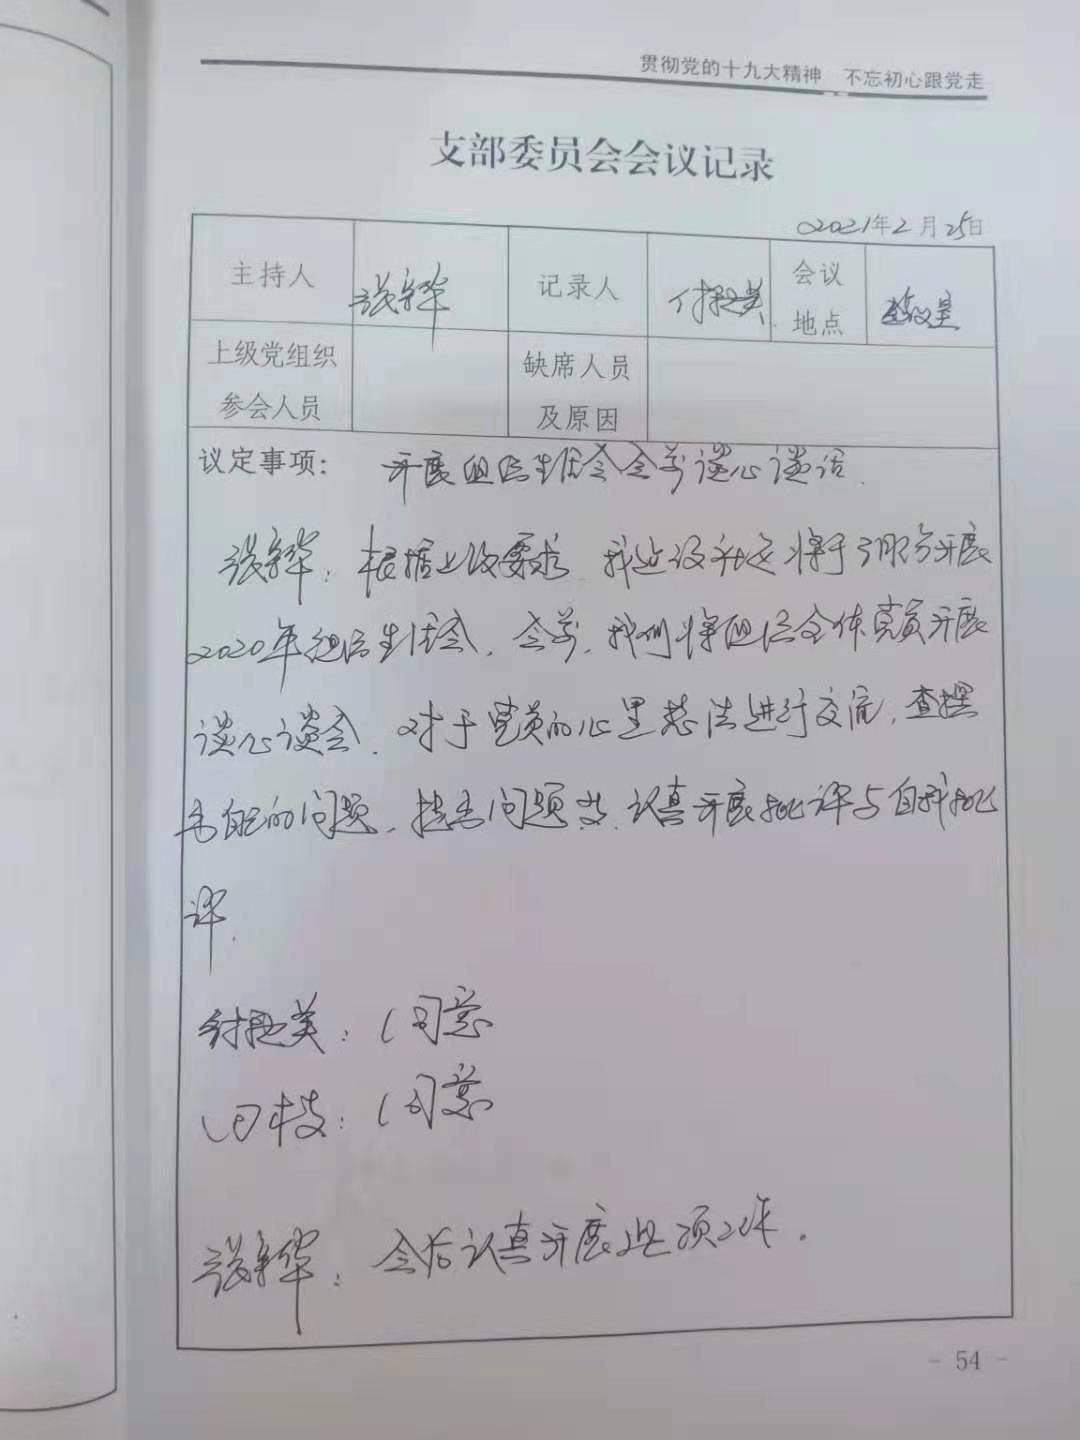 贯彻党的十九大精神 不忘初心跟党走
支部委员会会议记录
2021年2月25日
主持人 记录人 会议地点
上级党组织参会人员 缺席人员及原因
议定事项: 开展组织生活会会前谈心谈话.
根据上级要求. 我将于3月份开展
2020年组织生活会. 会前. 我们将组织全体党员开展
谈心谈会. 对于党员的心里想法进行交流. 查摆
出自己的问题. 找出问题 认真开展批评与自我批
评.
同意
同意
会后认真开展此项工作.
- 54 -